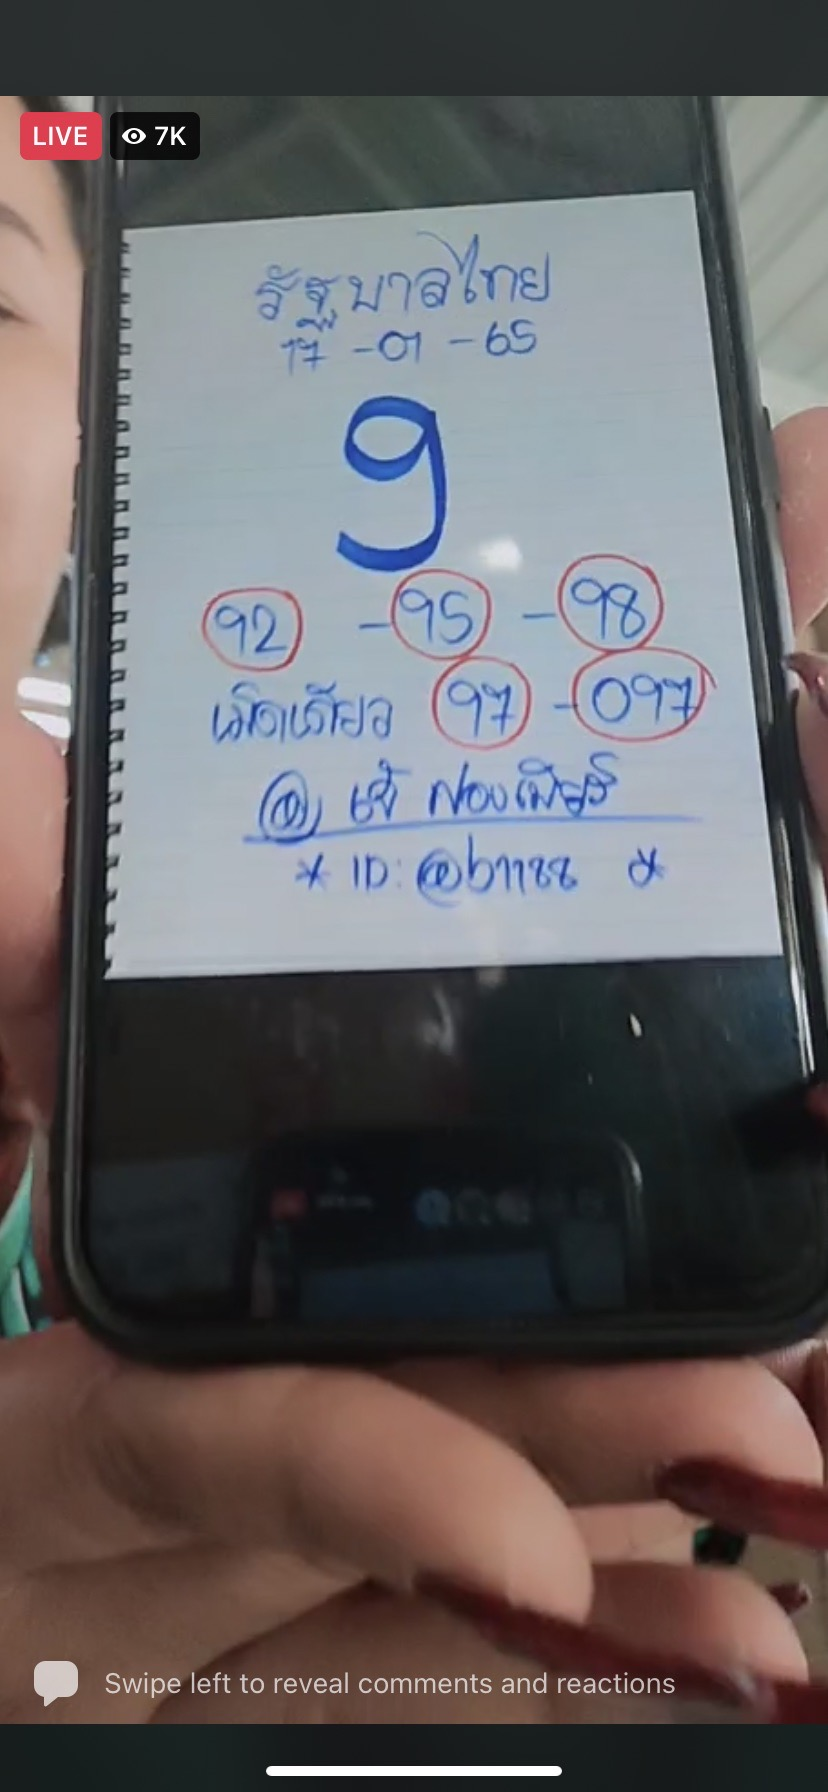 LIVE 7K
รัฐบาลไทย
17 -01 -65
9
92 -95 -98
เม็ดเดียว 97 -097
* ID: @b1188 *
Swipe left to reveal comments and reactions